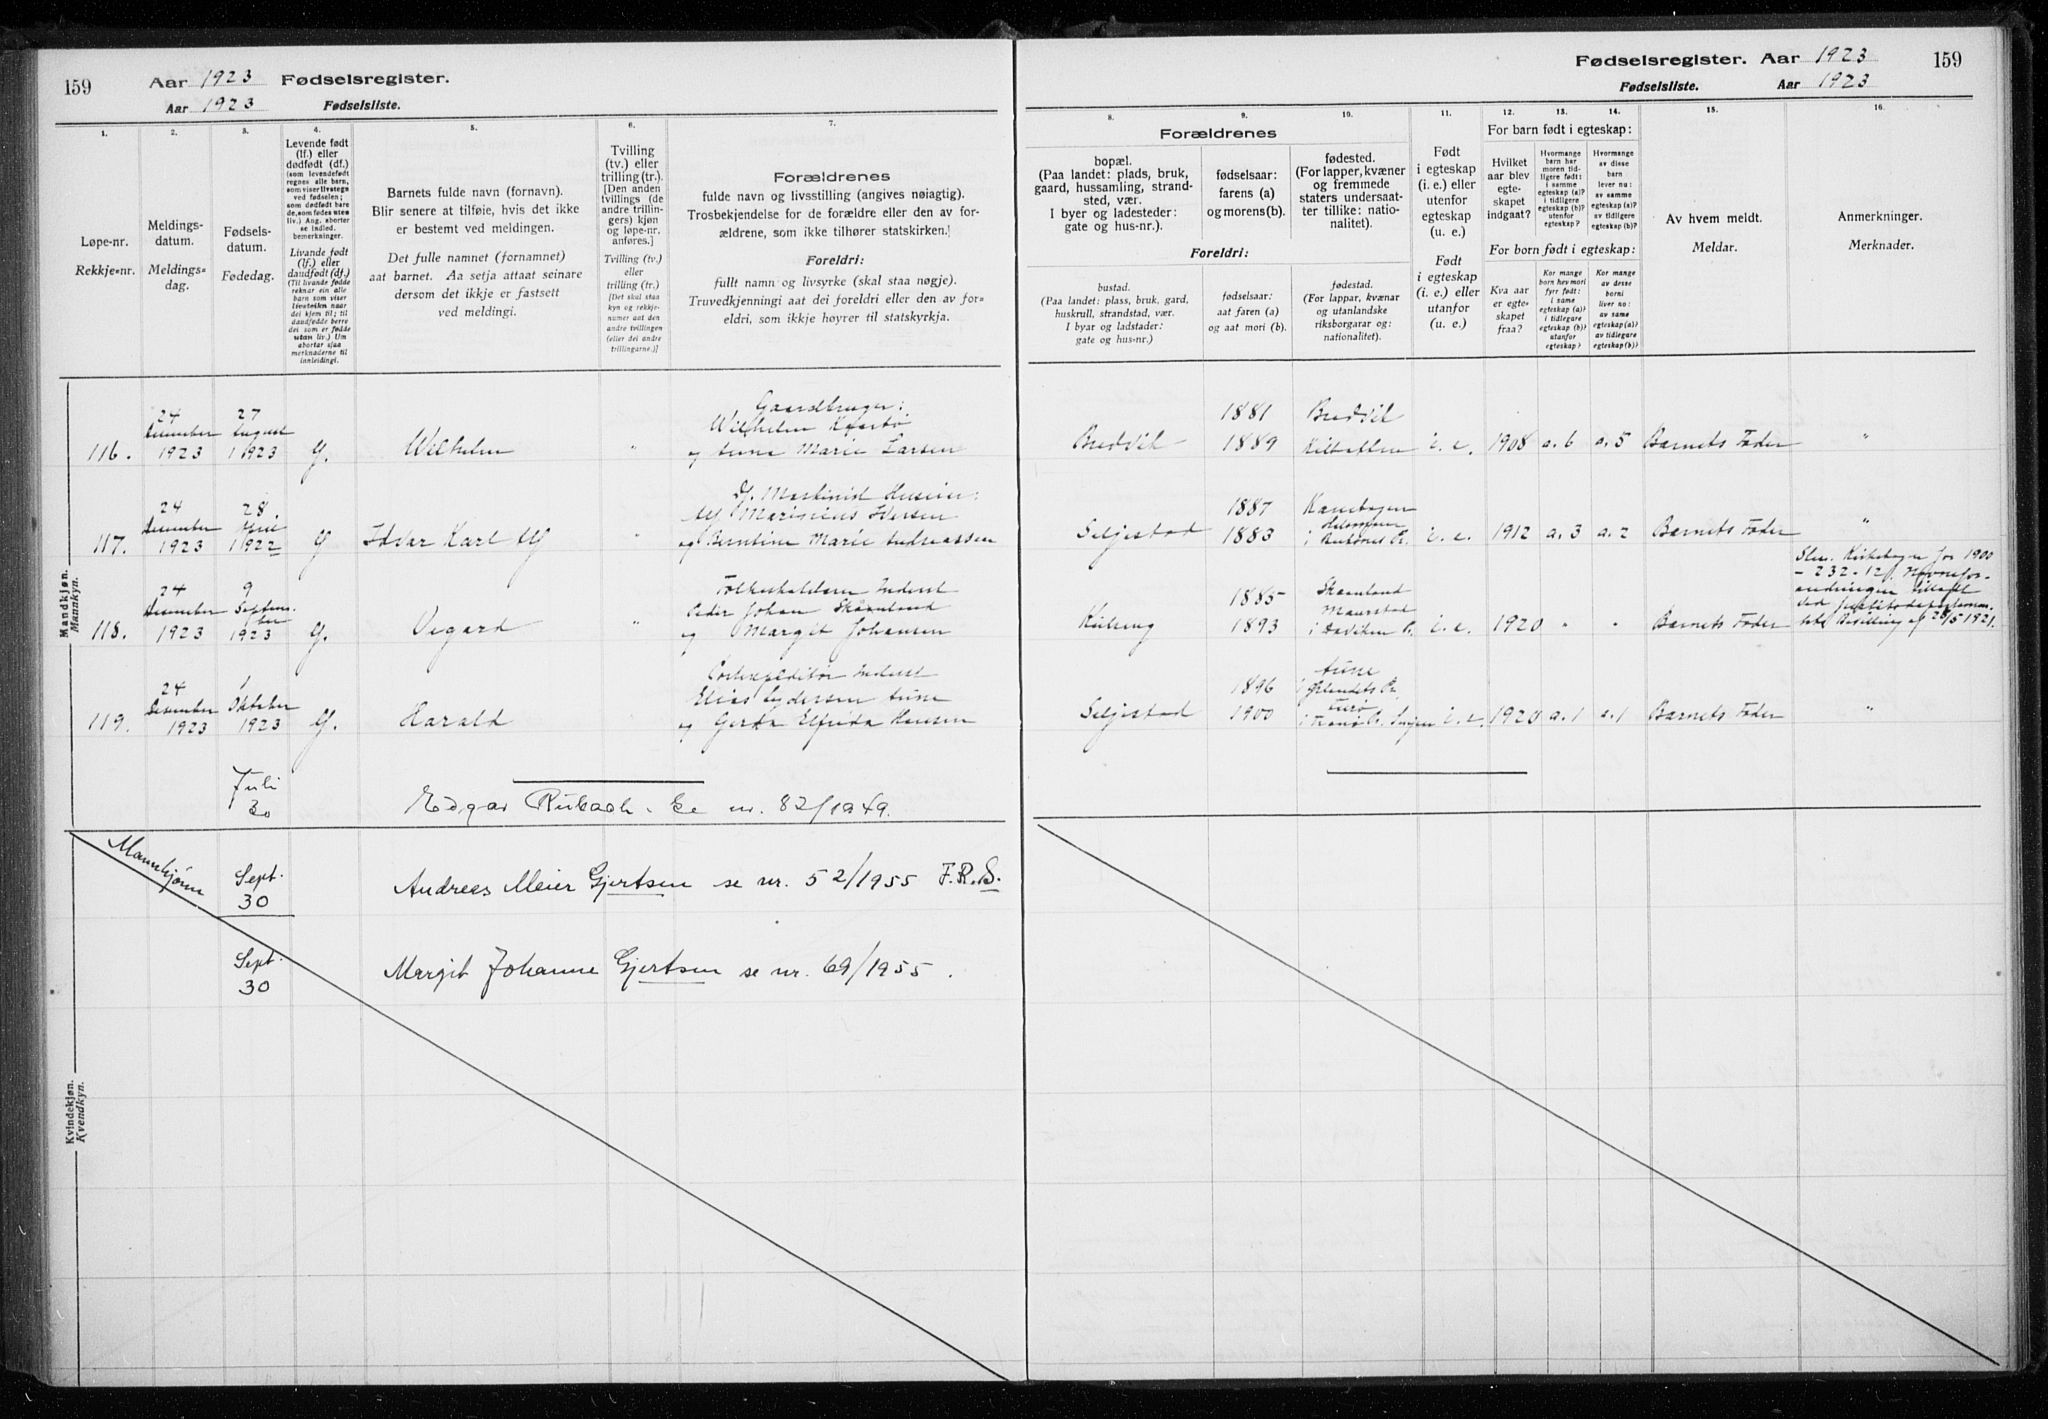 159 Aar 1923 Fødselsregister.
Aar 1923 Fødselsliste.
Fødselsregister. Aar 1923 159
Fødselsliste. Aar 1923
1.
Løpe-nr.
Rekkje=nr.
2.
Meldings-
datum.
Meldings=
dag.
3.
Fødsels-
datum.
Fødedag.
4.
Levende født
(lf.) eller
dødfødt (df.)
(som levendefødt
regnes alle barn,
som viser livstegn
ved fødselen;
som dødfødt bar-
de, som fødes uten
liv.) Ang. aborter
se indled.
bemerkninger.
Livande født
(lf.) eller
daudfødt (df.)
(Til livande fødde
reknar ein alle
born som viser
livsteikn naar
dei kjem til; til
daudfødde berre
dei som er fødde
utan liv.) Um
abortar sjaa
merknaderne til
innleidingi.
5.
Barnets fulde navn (fornavn).
Blir senere at tilføie, hvis det ikke
er bestemt ved meldingen.
Det fulle namnet (fornamnet)
aat barnet. Aa setja attaat seinare
dersom det ikkje er fastsett
ved meldingi.
6.
Tvilling
(tv.) eller
trilling (tr.)
[Den anden
tvillings (de
andre trillin-
gers) kjøn
og løpe-nr.
anføres.]
Tvilling (tv.)
eller
trilling (tr.)
[Det skal staa
kyn og rekkje-
numer aat den
andre tvillingen
(eller dei andre
trillingarne.)]
7.
Forældrenes
fulde navn og livsstilling (angives nøiagtig).
Trosbekjendelse for de forældre eller den av for-
ældrene, som ikke tilhører statskirken.
Foreldri:
fullt namn og livsyrke (skal staa nøgje).
Truvedkjenningi aat dei foreldri eller den av for=
eldri, som ikkje høyrer til statskyrkja.
8. 9. 10.
Forældrenes
bopæl.
(Paa landet: plads, bruk,
gaard, hussamling, strand-
sted, vær.
I byer og ladesteder:
gate og hus-nr.).
fødselsaar:
farens (a)
og morens (b).
fødested.
(For lapper, kvæner
og fremmede
staters undersaat-
ter tillike: natio-
nalitet).
Foreldri:
bustad.
(Paa landet: plass, bruk, gard,
huskrull, strandstad, vær.
I byar og ladstader:
gate og hus-nr.)
fødselsaar:
aat faren (a)
og aat mori (b).
fødestad.
(For lappar, kvænar
og utanlandske
riksborgarar og:
nationalitet).
11.
Født
i egteskap
(i. e.) eller
utenfor
egteskap
(u. e.)
Født
i egteskap
(i. e.) eller
utanfor
(u. e.)
12. 13. 14.
For barn født i egteskap:
Hvilket
aar blev
egte-
skapet
indgaat?
Hvormange
barn har
moren tid-
ligere født:
i samme
egteskap (a)?
i tidligere
egteskap (b)?
utenfor
egteskap?
Hvormange
av disse
barn
lever nu:
av samme
egteskap (a)?
av tidligere
egteskap (b)?
For born født i egteskap:
Kva aar
er egte=
skapet
fraa?
Kor mange
born hev mori
fyrr født:
i same
egteskap (a)?
i tidlegare
egteskap (b)?
utanfor
egteskap?
Kor mange
av desse
borni
liver no:
av same
egteskap (a)?
av tidlegare
egteskap (b)?
15.
Av hvem meldt.
Meldar.
16.
Anmerkninger.
Merknader.
Mandkjøn.
Mannkyn.
116. 24 December 1923 27 August 1923 G. Wilhelm "
Gaardbruger:
Wilhelm
og Anna Marie Larsen
Bredvik 1881 1889 Bredvik i. e. 1908 a. 6 a. 5 Barnets Fader "
117. 24 December 1923 28. 1922 G Idvar Karl Alf "
Maskinist Huseier:
Alf Marinius Iversen
og Berntine Marie Andreassen
Seljestad 1887 1883 Kanebogen i. e. 1912 a. 3 a. 2 Barnets Fader "
118. 24 December 1923 9 September 1923 G. Vegard "
Peder Johan Skaanland
og Margit Johansen
1885 1893 Skaanland
i Daviken P. i. e. 1920 " " Barnets Fader
Kirkebogen for 1900
- 232-12. Navnefor-
andringen tillatt
ved
Bevilling af 28/5 1921.
119. 24 December 1923 1 Oktober 1923 G. Harald
Postexpeditør
Elias Lydersen Aune
og Gerda Elfrida Hansen
Seljestad 1896 1900 Aune
i Tranø P. i. e. 1920 a. 1 a. 1 Barnets Fader "
Juli
30 Edgar Rubach. Se nr. 82/1949.
Mannkjønn
Sept.
30 Andreas Meier Gjertsen se nr. 52/1955 F.R.S.
Sept.
30 Margit Johanne Gjertsen se nr. 69/1955.
Kvindekjøn.
Kvendkyn.